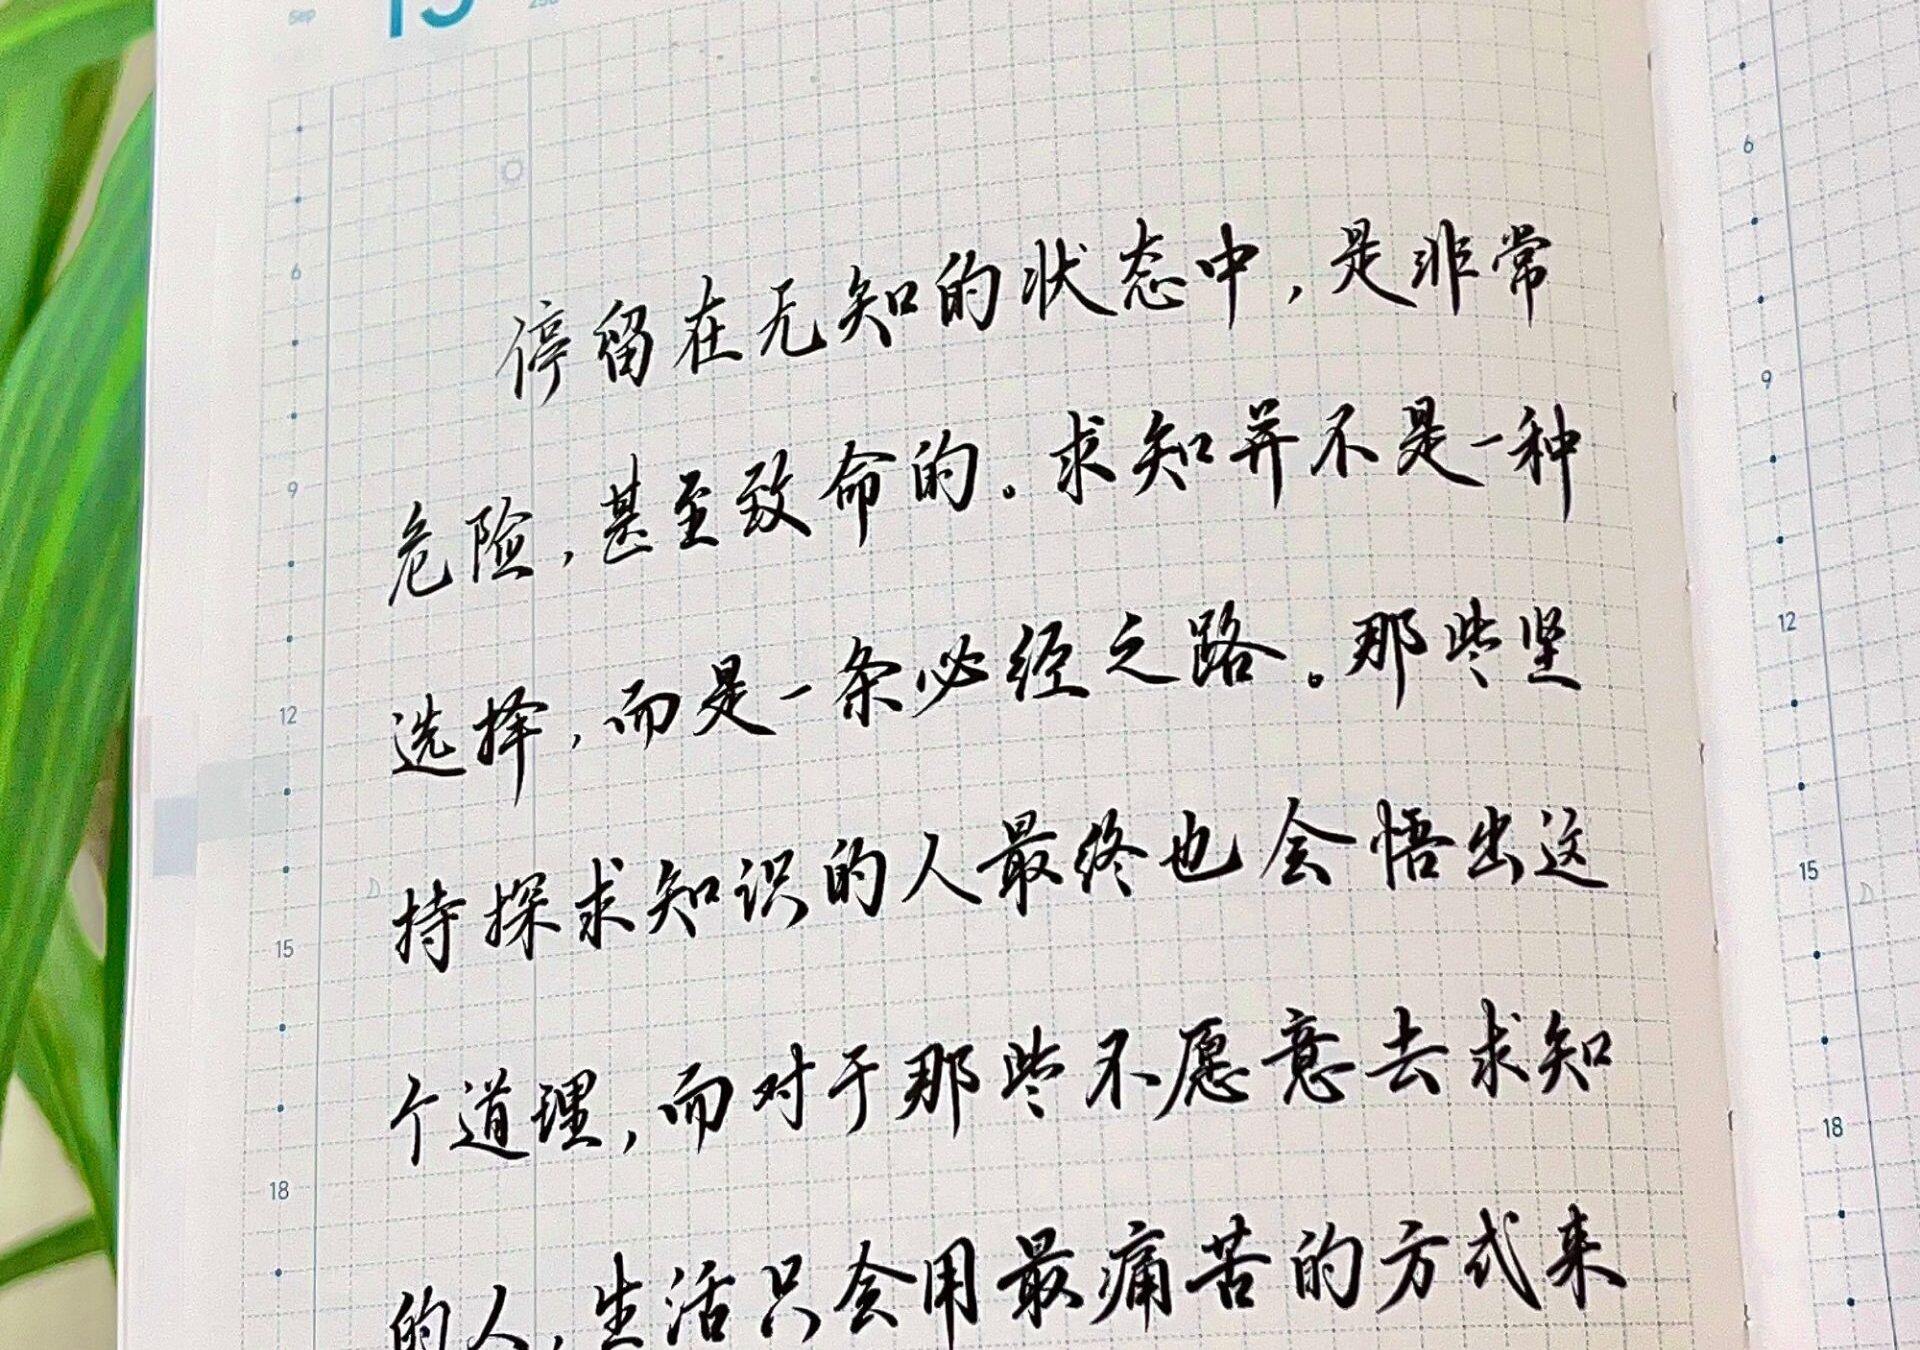 Sep
15
停留在无知的状态中，是非常
危险，甚至致命的。求知并不是一种
选择，而是一条必经之路。那些坚
持探求知识的人最终也会悟出这
个道理，而对于那些不愿意去求知
的人，生活只会用最痛苦的方式来
6
9
12
15
18
6
9
12
15
18